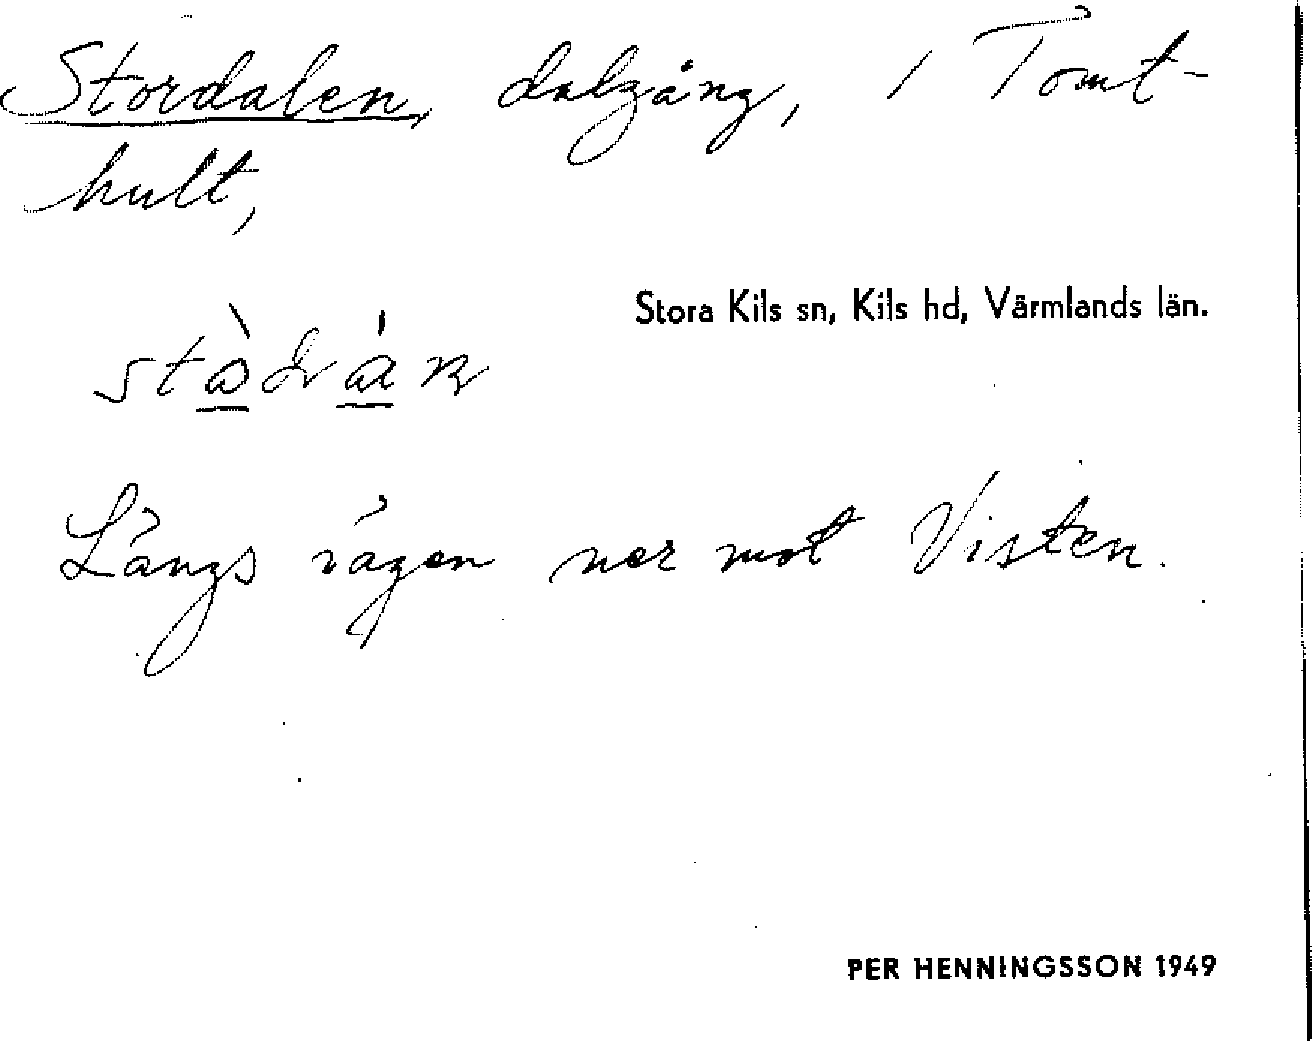 Stordalen, dalgång, i Tomt-
hult,
Stora Kils sn, Kils hd, Värmlands län.
Längs vägen ner mot Visten.
PER HENNINGSSON 1949